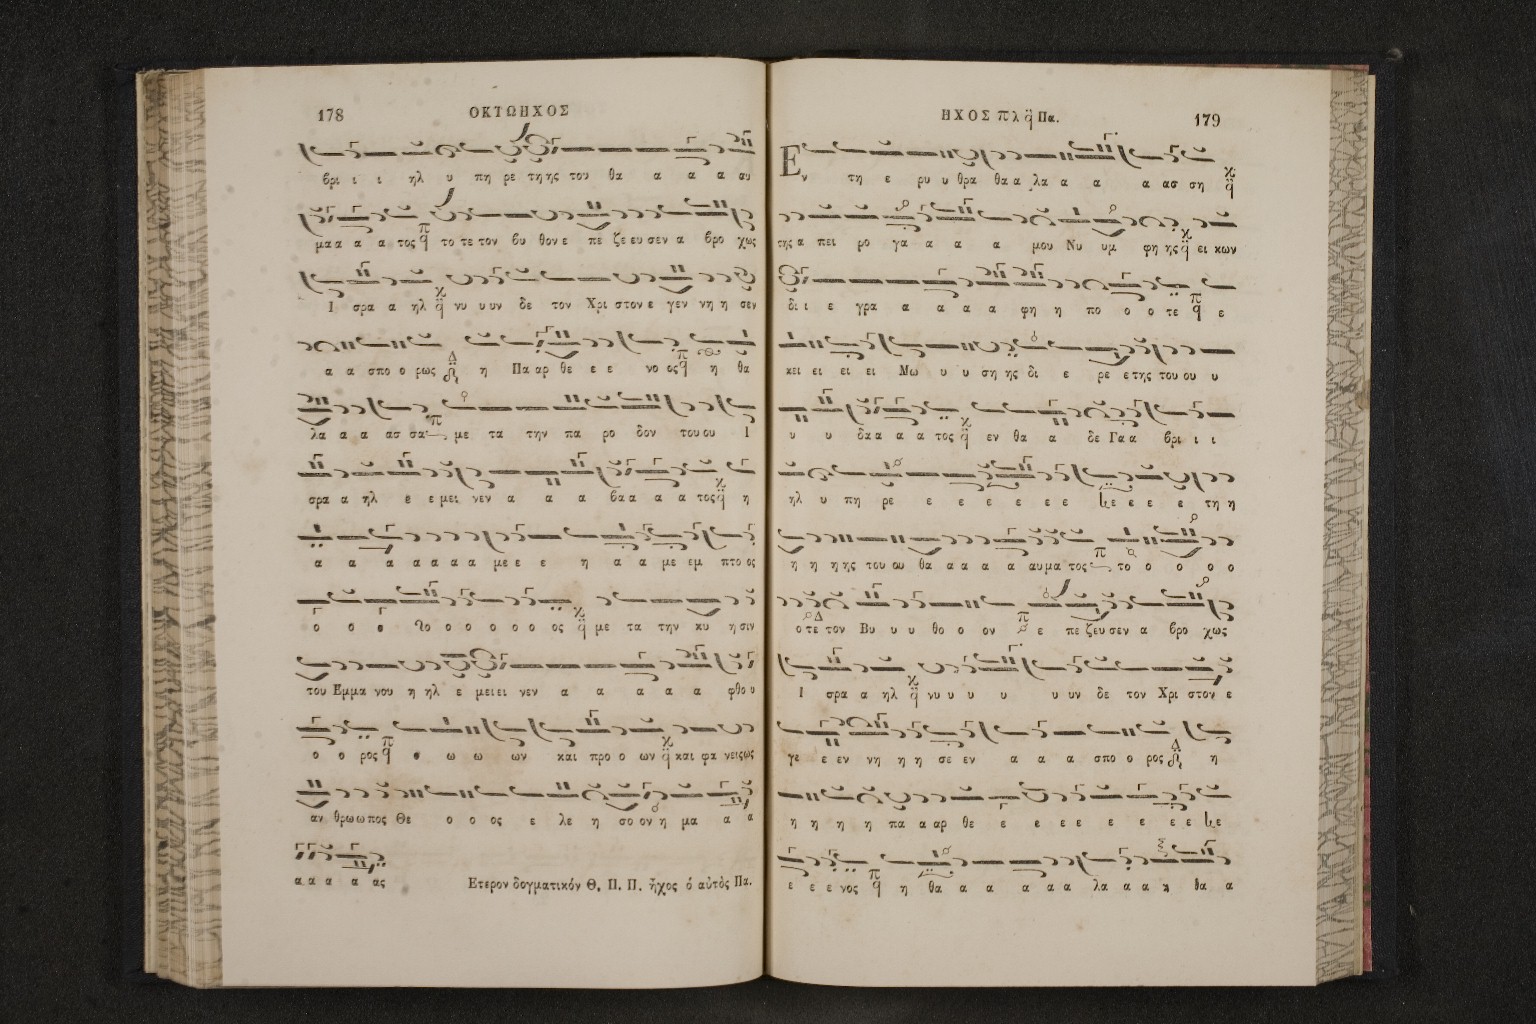 178
ΟΚΤΩΗΧΟΣ
βρι ι ι ηλ υ πη ρε τη ης του θα α α α αυ
μα α α α τος το τε τον βυ θον ε πε ζε ευ σεν α βρο χως
Ι σρα α ηλ νυ υ υν δε τον Χρι στον ε γεν νη η σεν
α α σπο ο ρως η Πα αρ θε ε ε νο ος η θα
λα α α ασ σα με τα την πα ρο δον του ου Ι
σρα α ηλ ε ε μει νεν α α α βα α α α τος η
α α α α α α α με ε ε η α α με εμ πτο ος
ο ο ο ο ο ο ο ο ο ος με τα την κυ η σιν
του Εμ μα νου η ηλ ε μει ει νεν α α α α α φθο υ
ο ο ρος ο ω ω ων και προ ο ων και φα νεις ως
αν θρω ω πος Θε ο ο ος ε λε η σο ον η μα α α
α α α α ας
Ετερον δογματικόν Θ. Π. Π. ἦχος ὁ αὐτὸς Πα.
ΗΧΟΣ πλ Πα.
179
Εν τη ε ρυ υ θρα θα α λα α α α ασ ση
της α πει ρο γα α α α μου Νυ υμ φη ης ει κων
δι ι ε γρα α α α α φη η πο ο ο τε ε
κει ει ει ει Μω υ υ ση ης δι ε ρε ε της του ου υ
υ υ δα α α α τος εν θα α δε Γα α βρι ι ι
ηλ υ πη ρε ε ε ε ε ε ε ε ε ε ε τη η
η η η ης του ου θα α α α α αυ μα τος το ο ο ο ο
ο τε τον Βυ υ υ θο ο ον ε πε ζευ σεν α βρο χως
Ι σρα α ηλ νυ υ υ υ υ υν δε τον Χρι στον ε
γε ε εν νη η η σε εν α α α σπο ο ρος η
η η η η πα α αρ θε ε ε ε ε ε ε ε ε ε
ε ε ε νος η θα α α α α α λα α α θα α